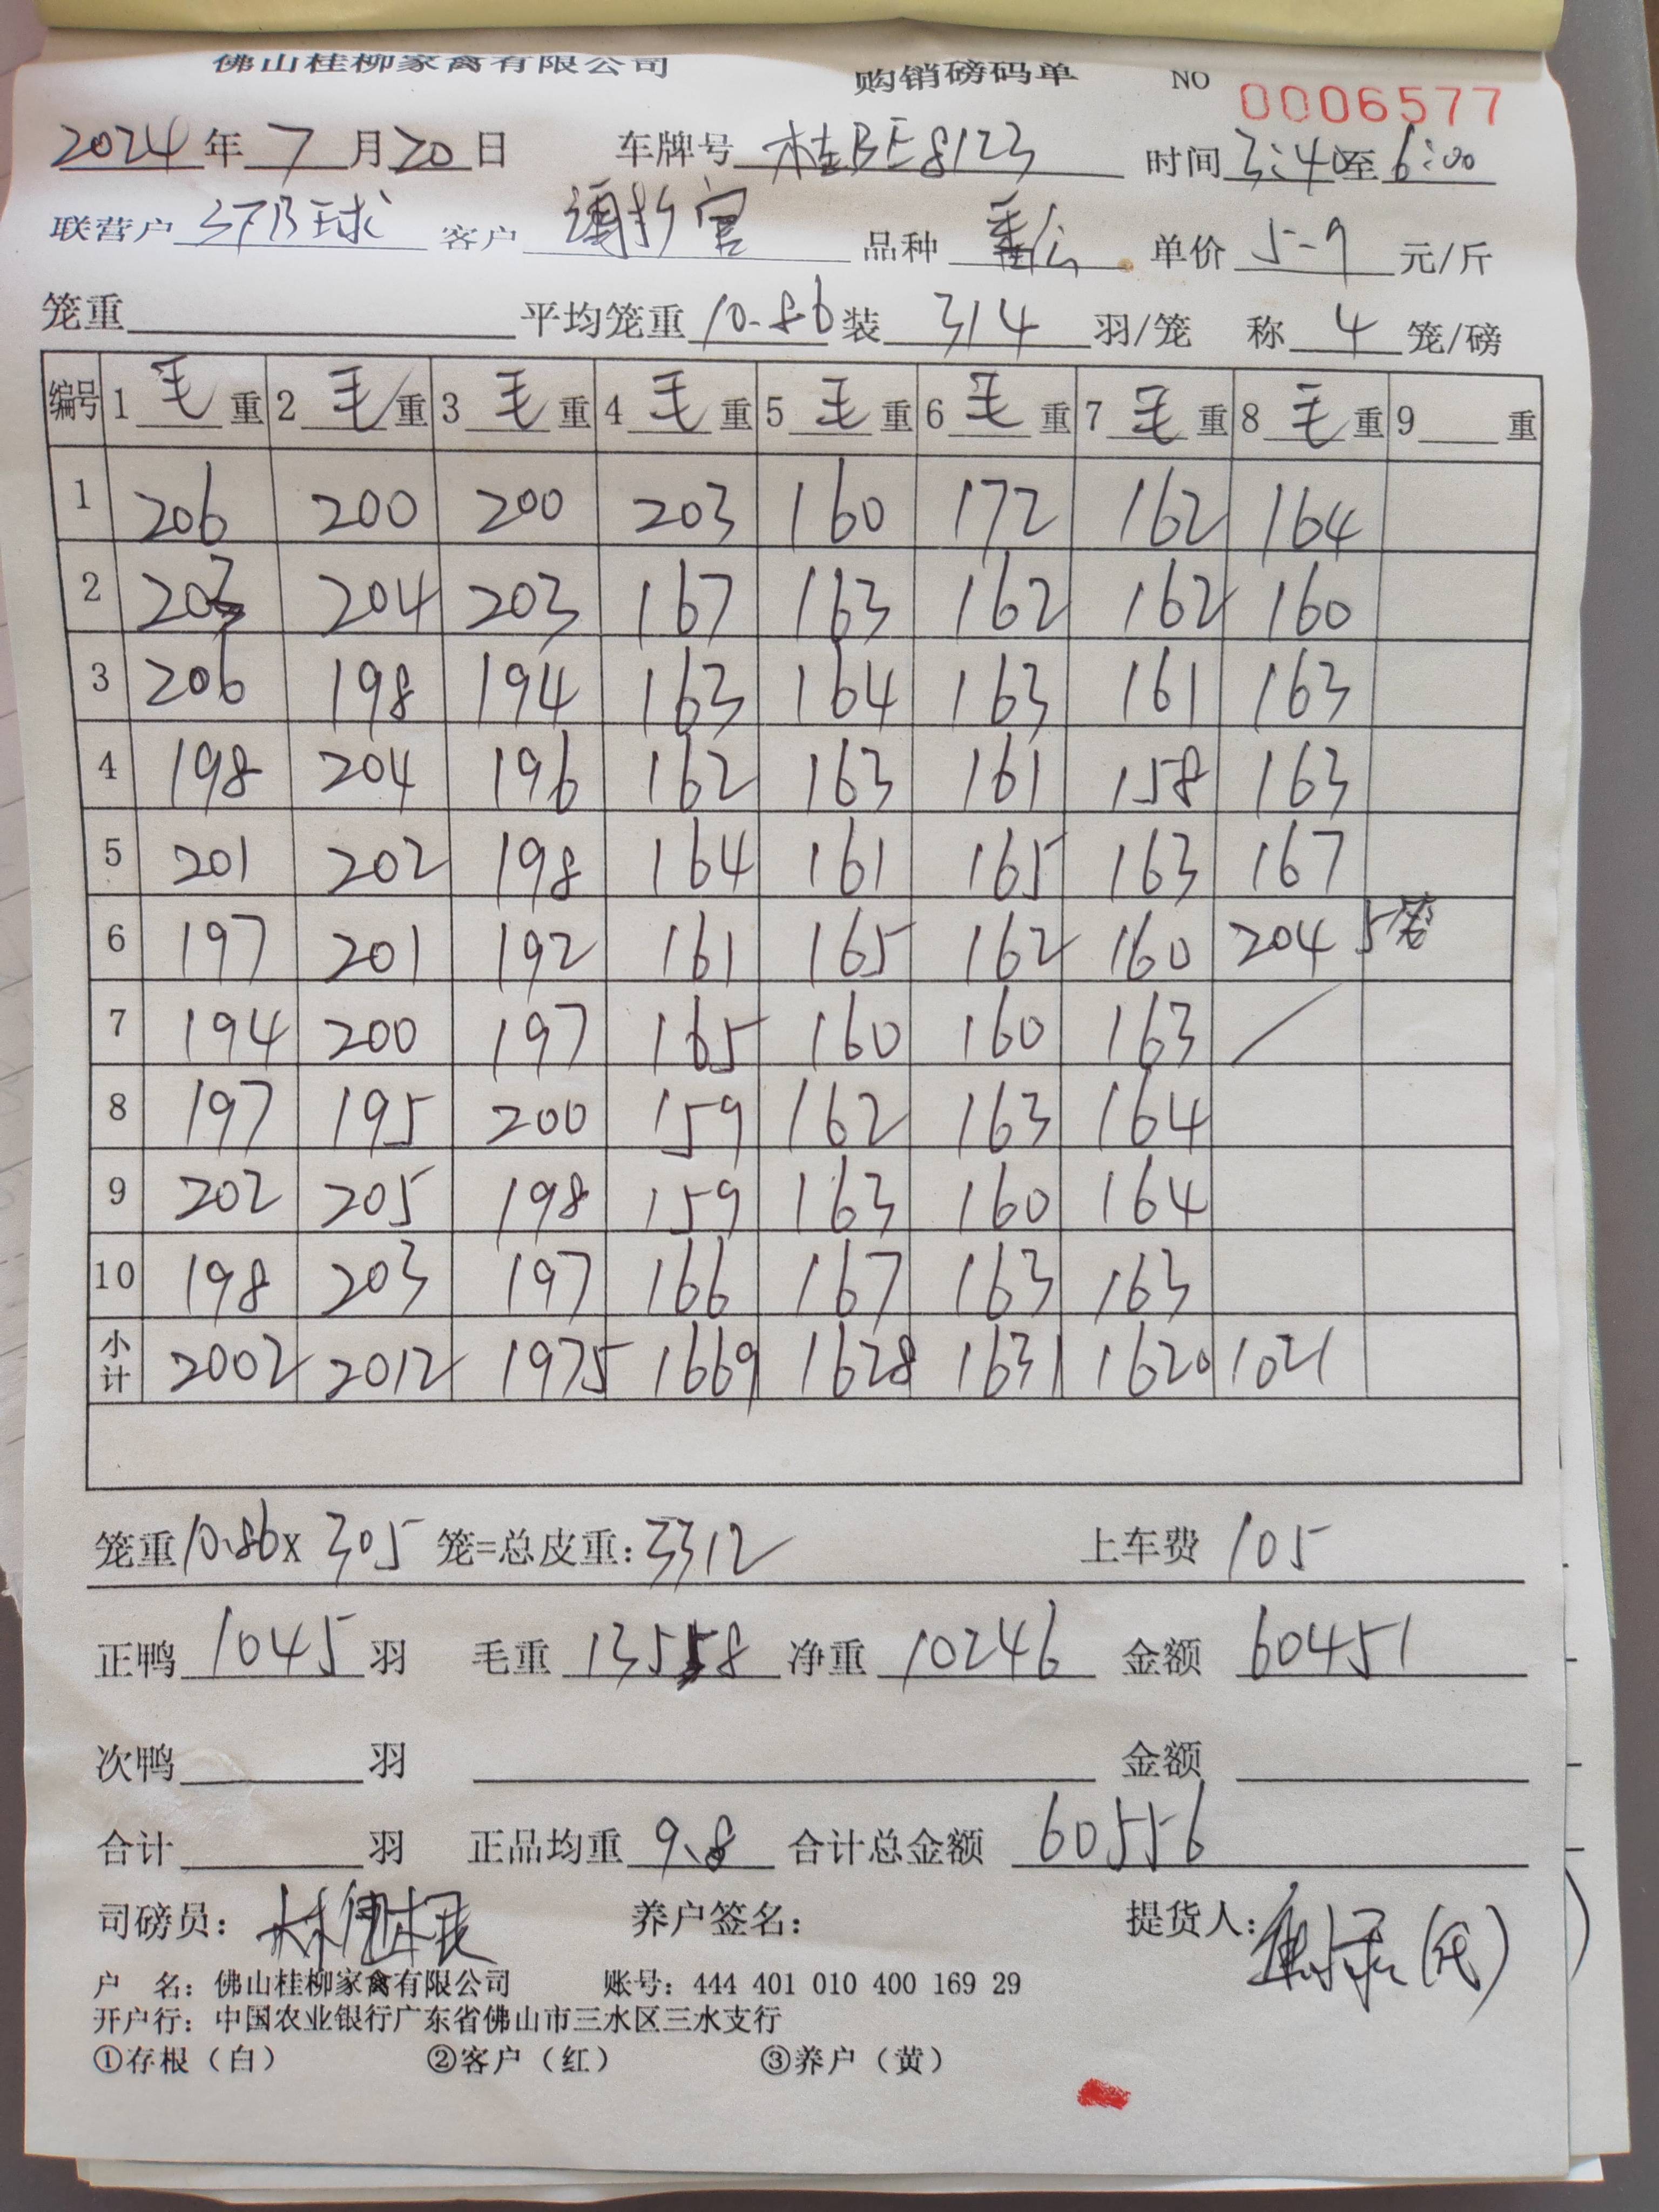 佛山桂柳家禽有限公司 购销磅码单 NO 0006577
2024年7月20日 车牌号 桂BE8123 时间 3:40至6:00
联营户 球 客户 品种 单价 5-9 元/斤
笼重 平均笼重 10.86 装 314 羽/笼 称 4 笼/磅
编号 1 毛重 2 毛重 3 毛重 4 毛重 5 毛重 6 毛重 7 毛重 8 毛重 9 重
1 206 200 200 203 160 172 162 164
2 203 204 203 167 163 162 162 160
3 206 198 194 163 164 163 161 163
4 198 204 196 162 163 161 158 163
5 201 202 198 164 161 165 163 167
6 197 201 192 161 165 162 160 204 5笼
7 194 200 197 165 160 160 163 /
8 197 195 200 159 162 163 164
9 202 205 198 159 163 160 164
10 198 203 197 166 167 163 163
小计 2002 2012 1975 1669 1628 1631 1620 1021
笼重 10.86 x 305 笼=总皮重: 3312 上车费 105
正鸭 1045 羽 毛重 13558 净重 10246 金额 60451
次鸭 羽 金额
合计 羽 正品均重 9.8 合计总金额 60556
司磅员: 养户签名: 提货人: (代)
户 名: 佛山桂柳家禽有限公司 账号: 444 401 010 400 169 29
开户行: 中国农业银行广东省佛山市三水区三水支行
①存根（白） ②客户（红） ③养户（黄）